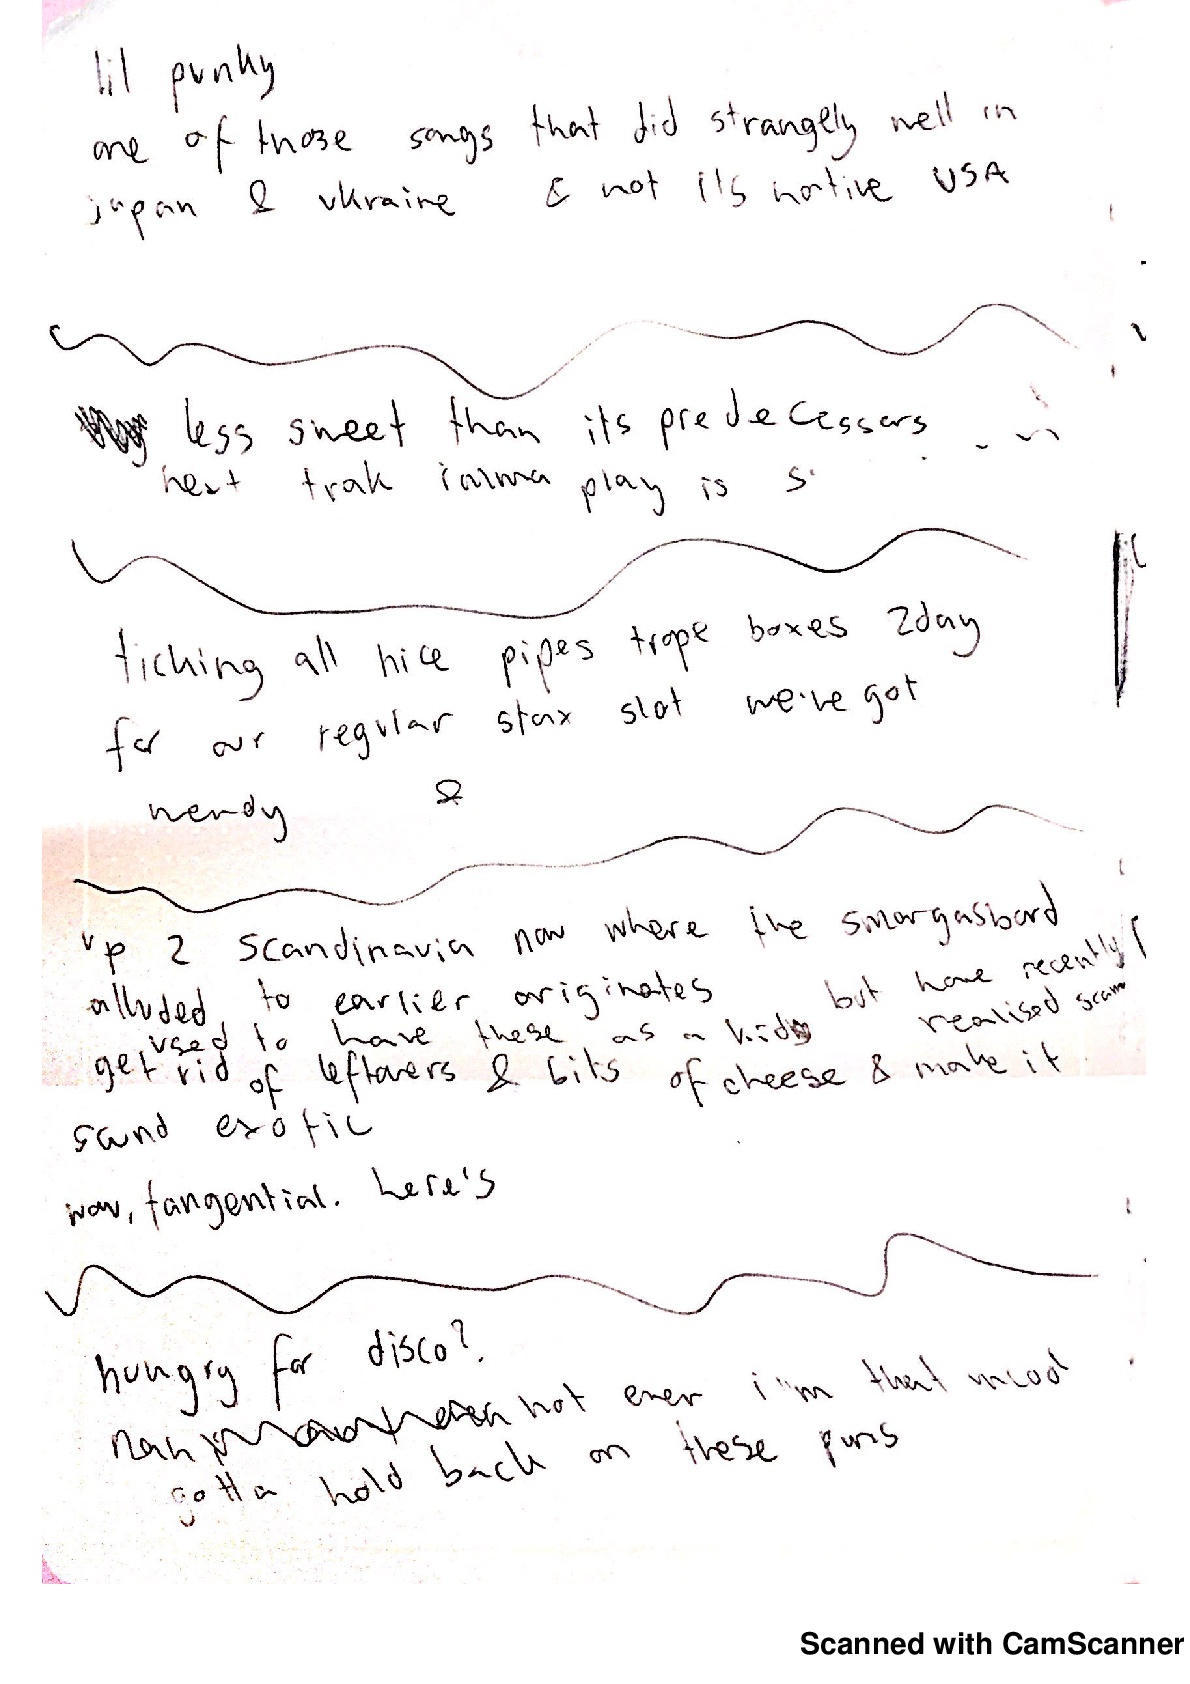 lil punky
one of those songs that did strangely well in
japan & ukraine & not it's native USA
less sweet than its predecessers
next trak imma play is s
ticking all nice pipes trope boxes 2day
for our regular stax slot we've got
wendy &
up 2 scandinavia now where the smorgasbord
alluded to earlier originates but have recently
used to have these as a kid realised scam
get rid of leftovers & bits of cheese & make it
sound exotic
wow, tangential. here's
hungry for disco?
nah not ever i'm that mood
gotta hold back on these puns
Scanned with CamScanner